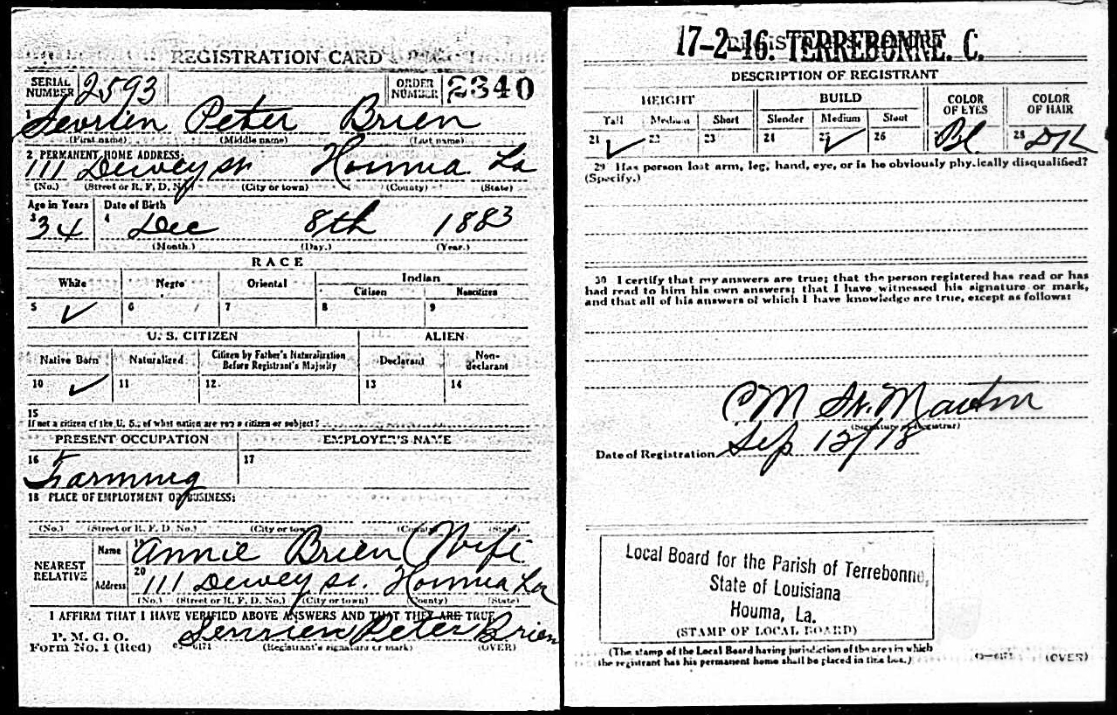 REGISTRATION CARD
SERIAL NUMBER 2593 ORDER NUMBER 2340
1 Peter Brien
(First name) (Middle name) (Last name)
2 PERMANENT HOME ADDRESS:
111 Dewey st Houma La
(No.) (Street or R. F. D. No.) (City or town) (County) (State)
Age in Years Date of Birth
3 34 4 Dec 8th 1883
(Month.) (Day.) (Year.)
RACE
White Negro Oriental Indian
Citizen Noncitizen
5 ✓ 6 7 8 9
U. S. CITIZEN ALIEN
Native Born Naturalized Citizen by Father's Naturalization Before Registrant's Majority Declarant Non-declarant
10 ✓ 11 12 13 14
15
If not a citizen of the U. S., of what nation are you a citizen or subject?
PRESENT OCCUPATION EMPLOYER'S NAME
16 Farming 17
18 PLACE OF EMPLOYMENT OR BUSINESS:
(No.) (Street or R. F. D. No.) (City or town) (County) (State)
NEAREST RELATIVE Name 19 Annie Brien (Wife
Address 20 111 Dewey st. Houma La
(No.) (Street or R. F. D. No.) (City or town) (County) (State)
I AFFIRM THAT I HAVE VERIFIED ABOVE ANSWERS AND THAT THEY ARE TRUE
P. M. G. O.
Form No. 1 (Red) Peter Brien
(Registrant's signature or mark) (OVER)
17-2-16. TERREBONNE. C.
DESCRIPTION OF REGISTRANT
HEIGHT BUILD COLOR OF EYES COLOR OF HAIR
Tall Medium Short Slender Medium Stout
21 ✓ 22 23 24 25 ✓ 26 27 Bl 28 DK
29 Has person lost arm, leg, hand, eye, or is he obviously physically disqualified?
(Specify.)
30 I certify that my answers are true; that the person registered has read or has
had read to him his own answers; that I have witnessed his signature or mark,
and that all of his answers of which I have knowledge are true, except as follows:
C M St. Martin
(Signature of Registrar)
Date of Registration Sep 12/18
Local Board for the Parish of Terrebonne,
State of Louisiana
Houma, La.
(STAMP OF LOCAL BOARD)
(The stamp of the Local Board having jurisdiction of the area in which
the registrant has his permanent home shall be placed in this box.)
(OVER)